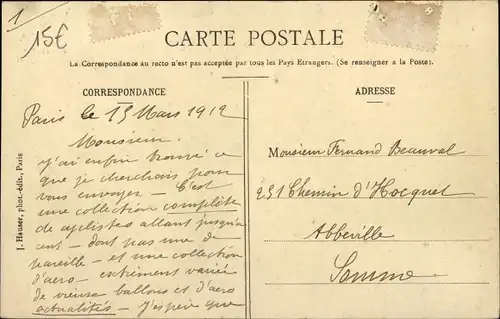 1
15€
CARTE POSTALE
La Correspondance au recto n'est pas acceptée par tous les Pays Etrangers. (Se renseigner à la Poste).
CORRESPONDANCE
ADRESSE
Paris le 15 Mars 1912
Monsieur
J'ai enfin trouvé ce
que je cherchais pour
vous envoyer – C'est
une collection complète
de cyclistes allant jusqu'à
cent – dont pas une de
pareille – et une collection
d'aero – extrement variée
de vieux ballons et d'aero
actualités – J'espère que
Monsieur Fernand Beauval
251 Chemin d'Hocquet
Abbeville
Somme
J. Hauser, phot.-édit., Paris